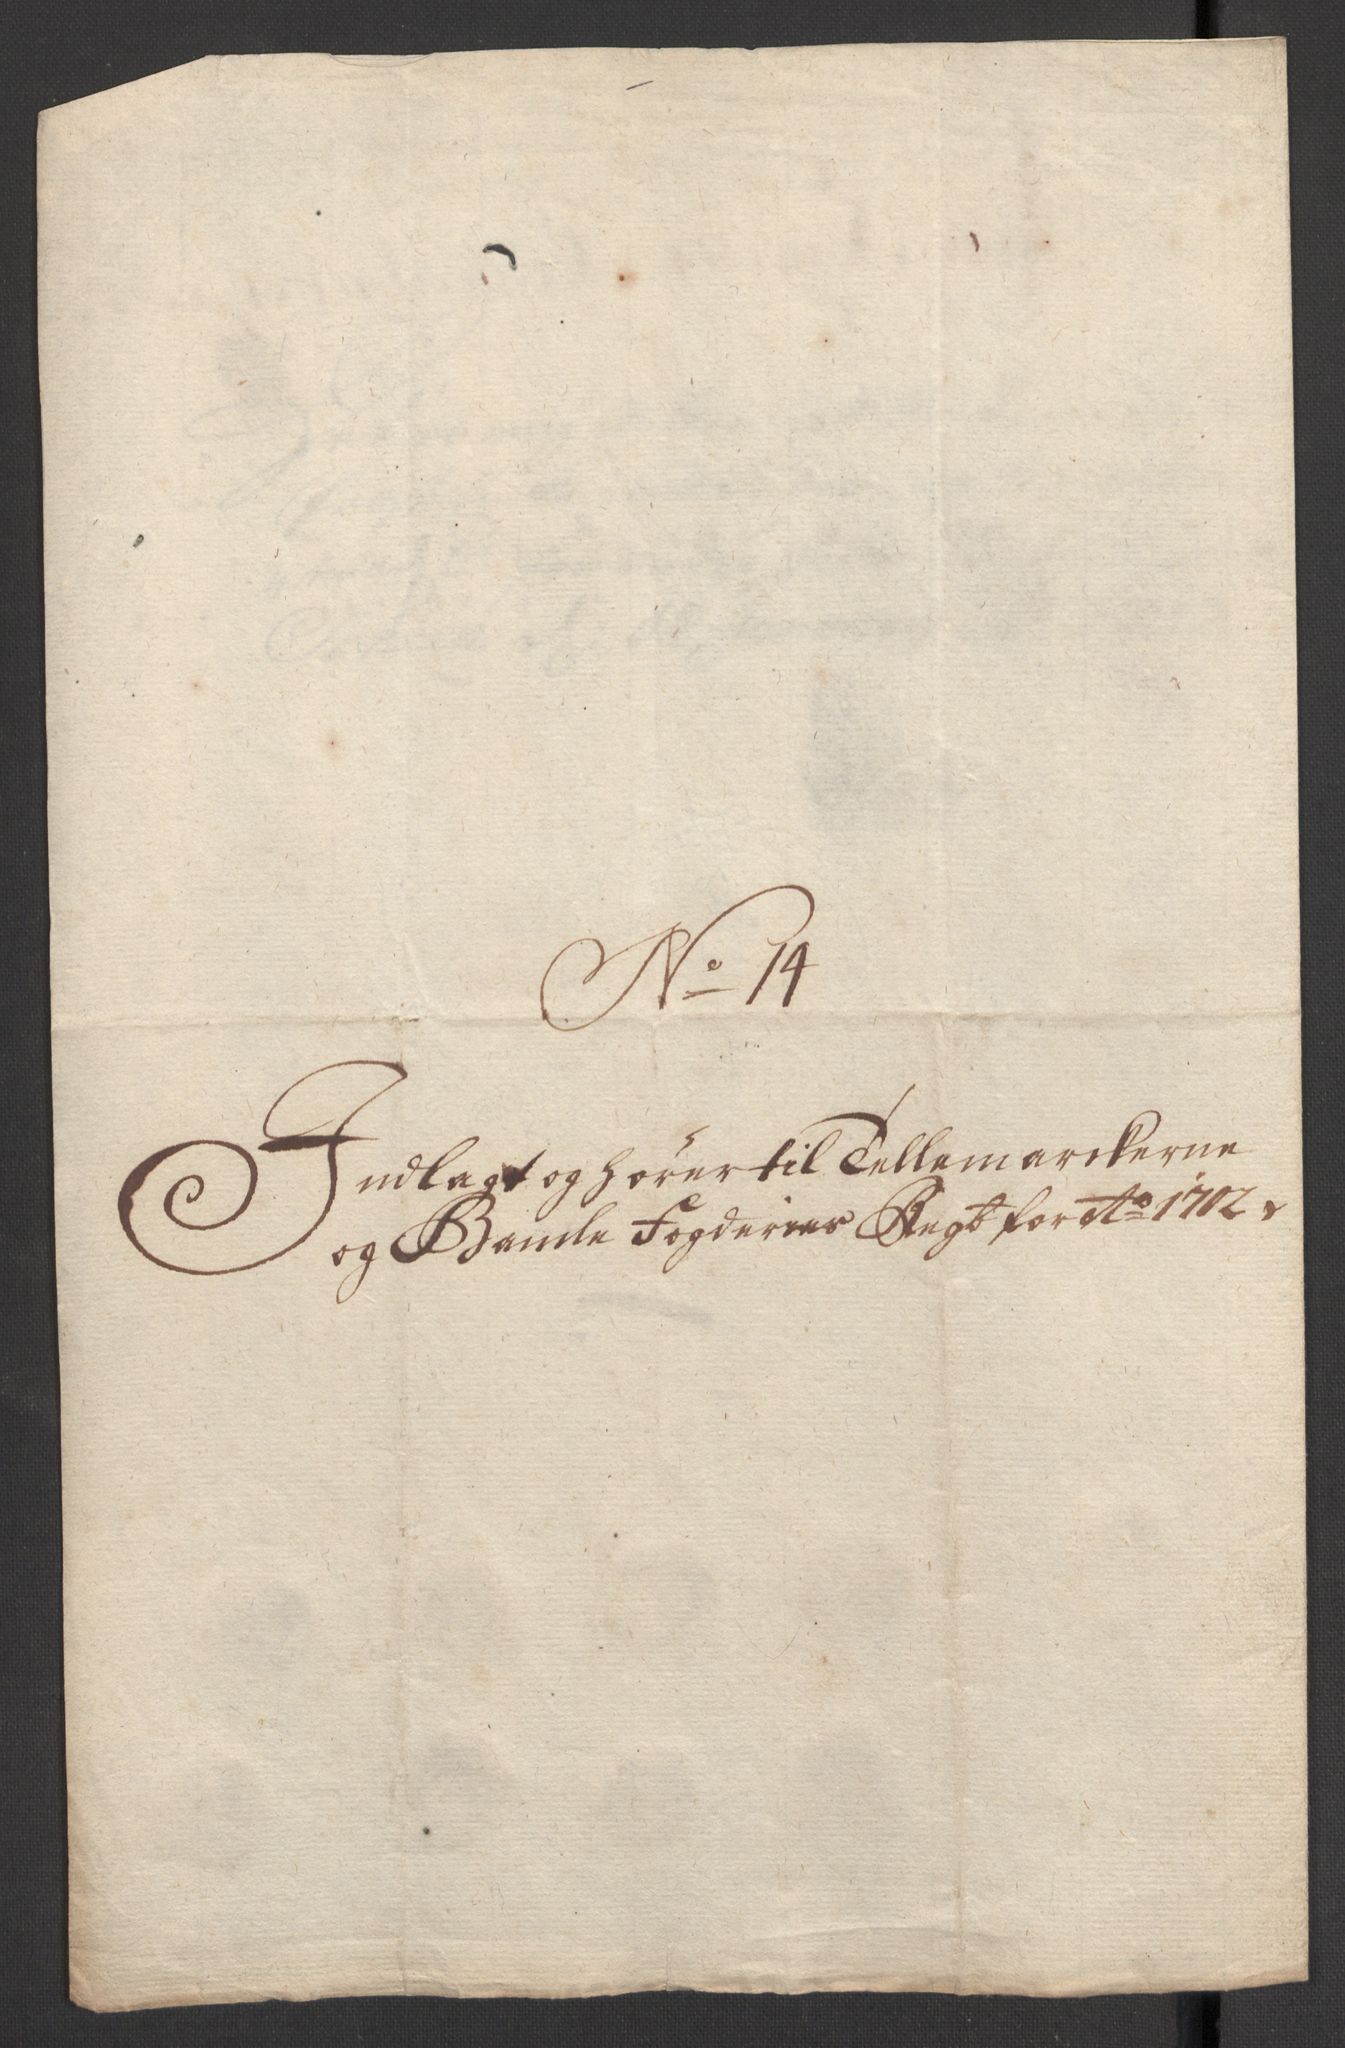 No 14
Indlagt og hører til Tellemarckerne
og Bamle Fogderies Regb for Ao 1702